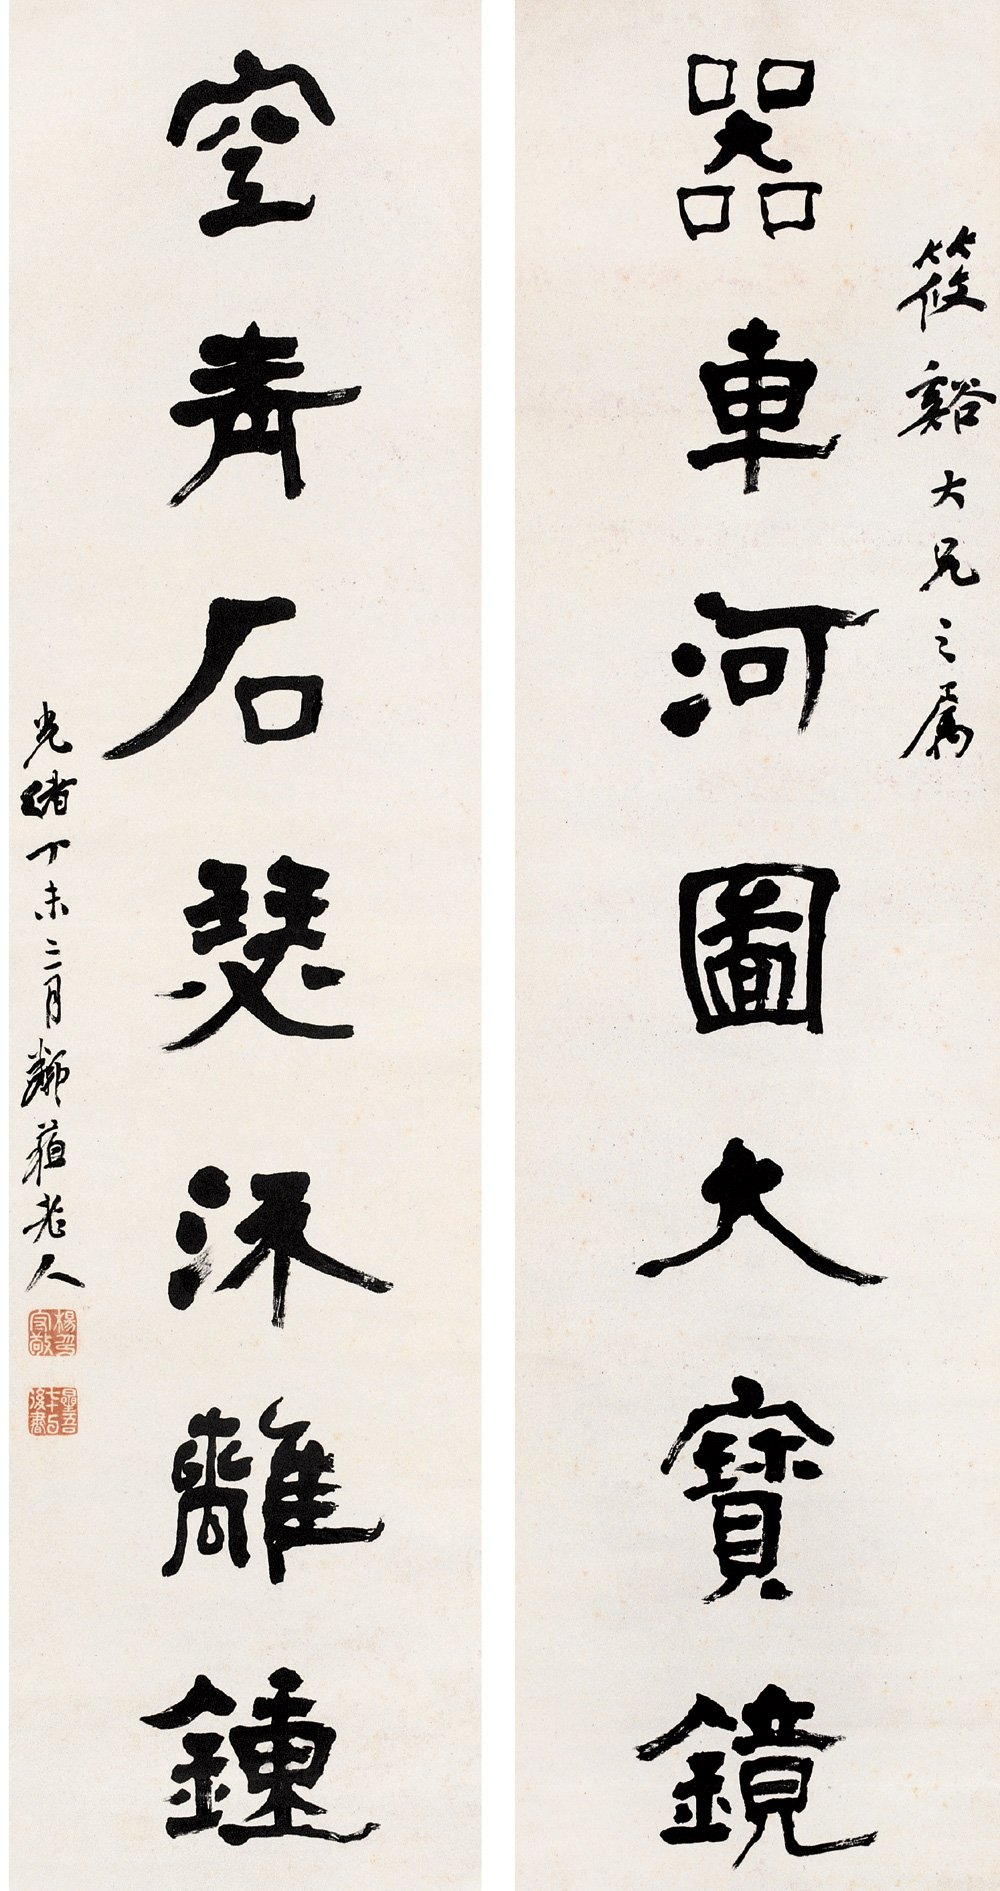 筱谿大兄之属
器車河圖大寶鏡
空青石瑟泳離鍾
光緒丁未二月鄰蘇老人
楊守敬印
星吾七十以後書